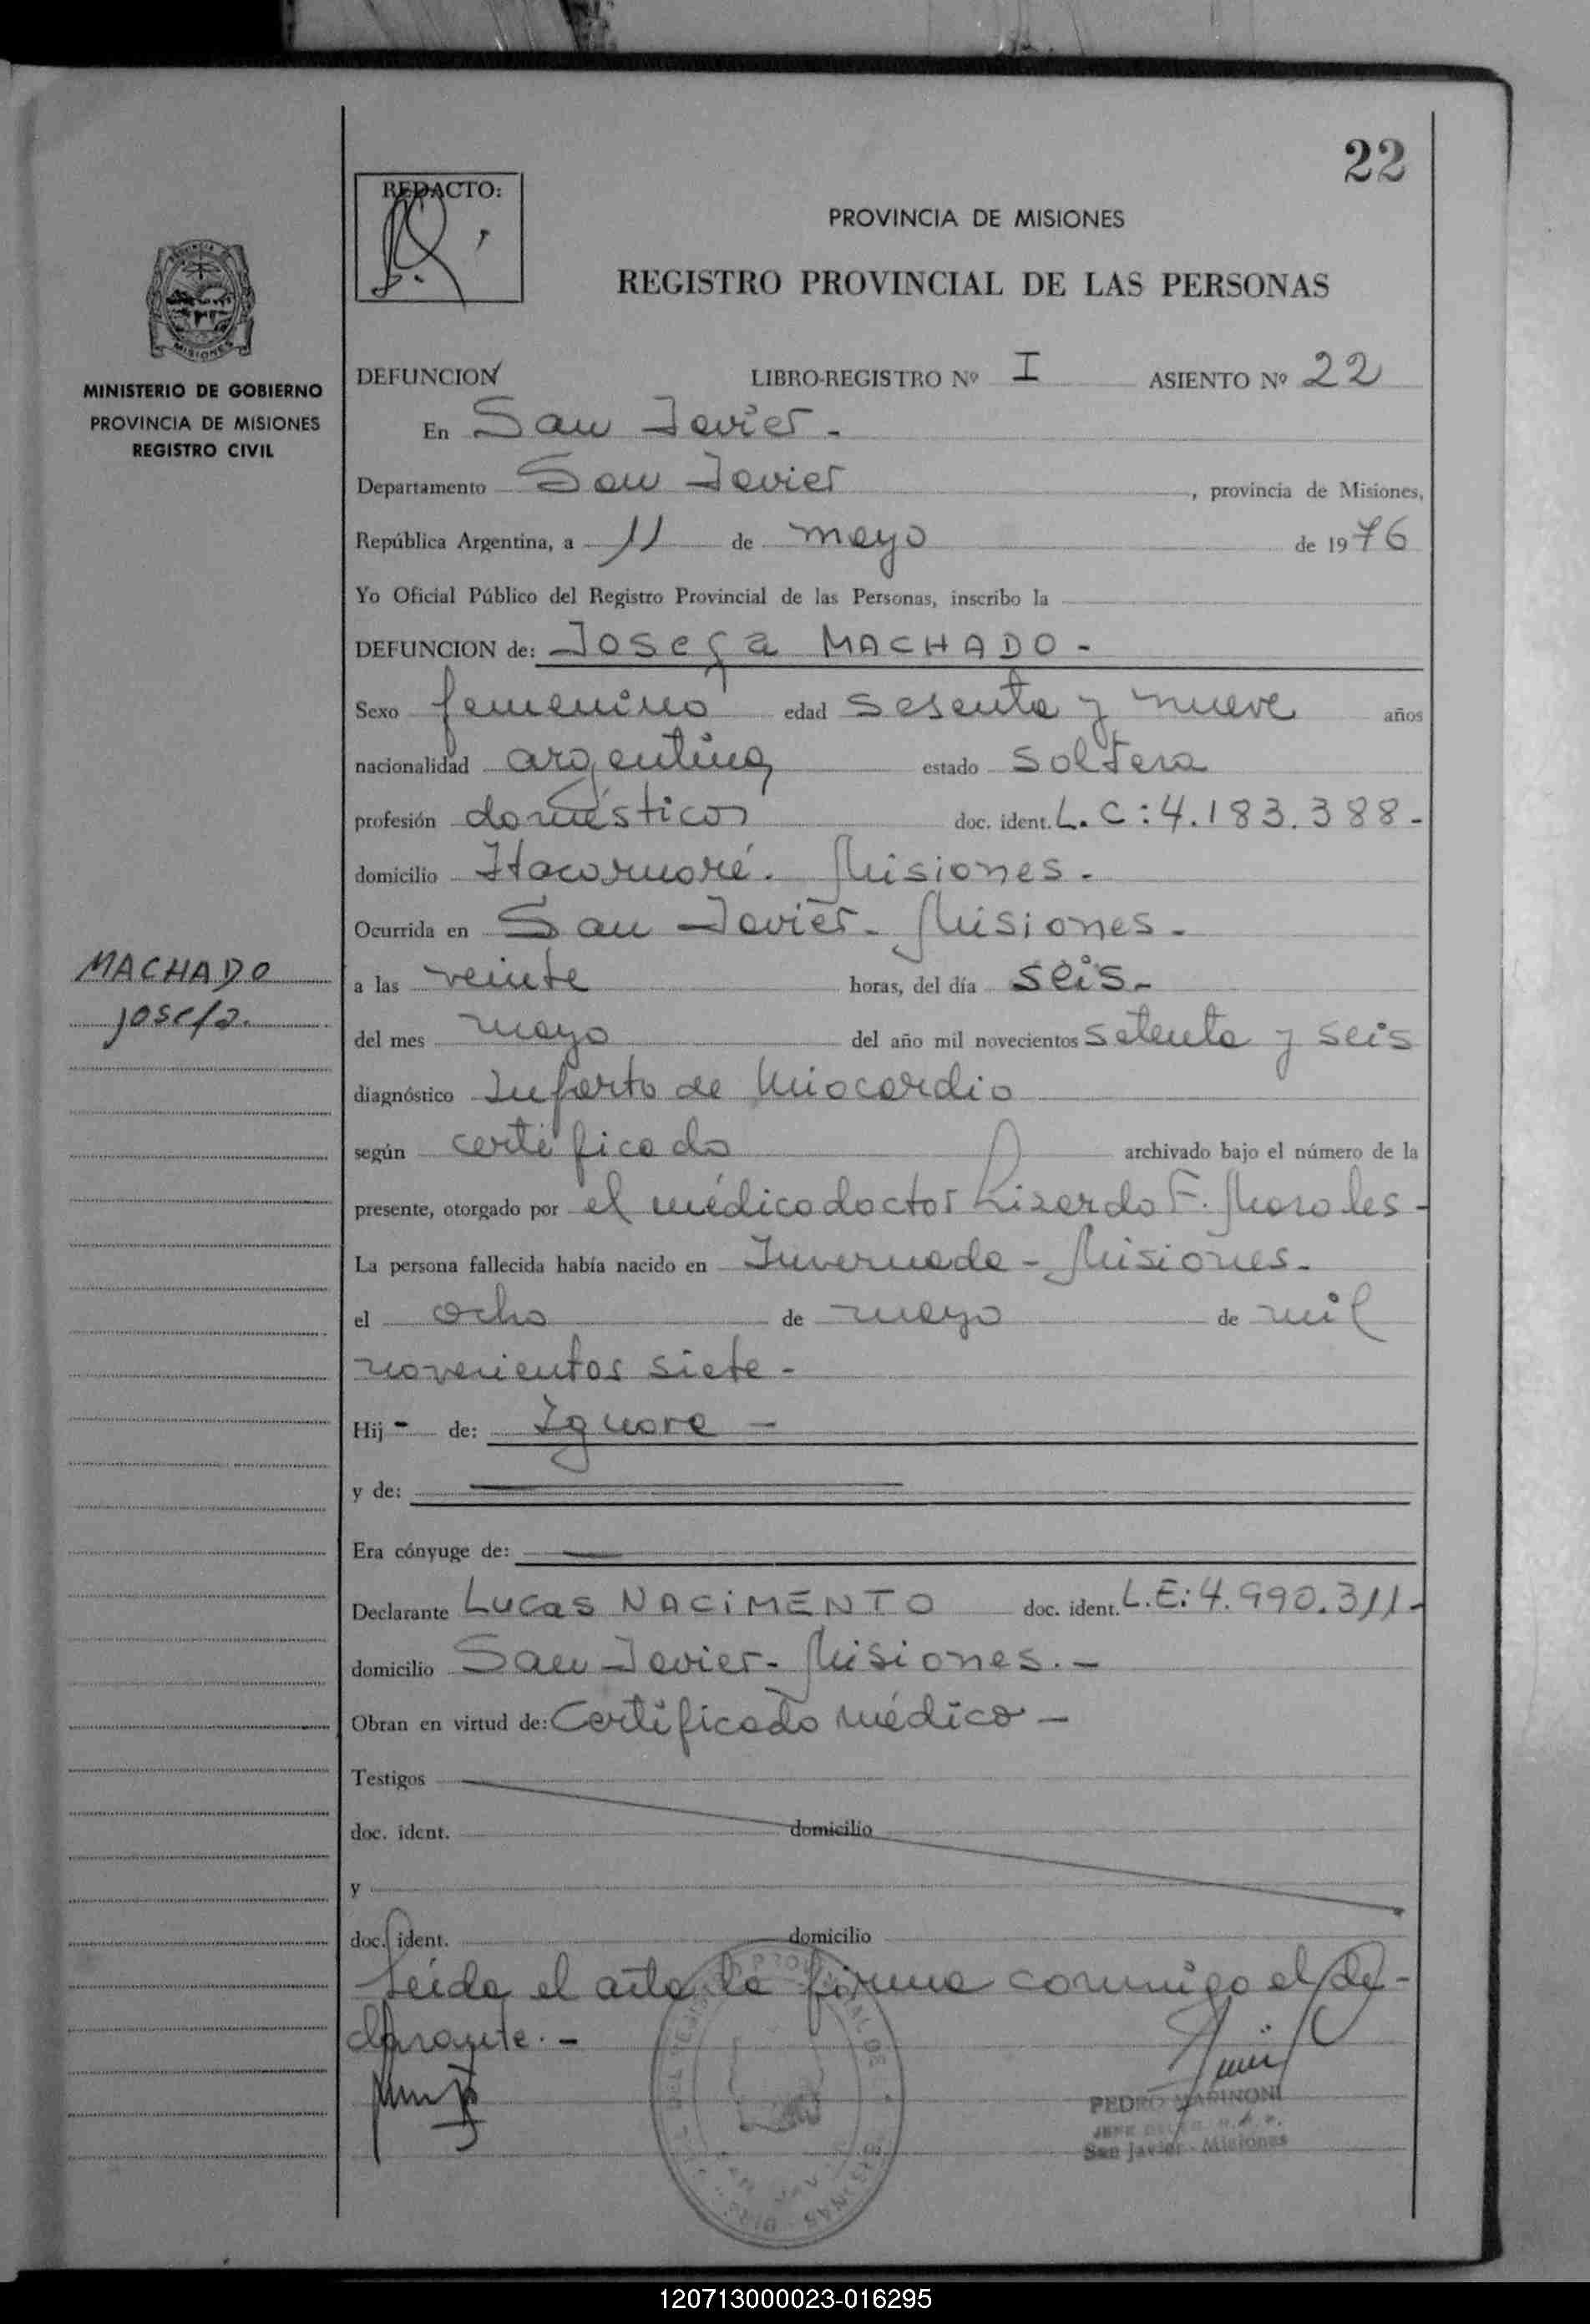 22
REDACTO:
PROVINCIA DE MISIONES
REGISTRO PROVINCIAL DE LAS PERSONAS
MISIONES
MINISTERIO DE GOBIERNO
PROVINCIA DE MISIONES
REGISTRO CIVIL
DEFUNCION LIBRO-REGISTRO Nº I ASIENTO Nº 22
En San Javier.
Departamento San Javier, provincia de Misiones,
República Argentina, a 11 de mayo de 1976
Yo Oficial Público del Registro Provincial de las Personas, inscribo la
DEFUNCION de: Josefa MACHADO -
Sexo femenino edad sesenta y nueve años
nacionalidad argentina estado soltera
profesión domésticos doc. ident. L. C: 4.183.388-
domicilio Itacaruaré. Misiones.
Ocurrida en San Javier- Misiones.
MACHADO
Josefa.
a las veinte horas, del día seis.-
del mes mayo del año mil novecientos setenta y seis
diagnóstico Infarto de Miocardio
según certificado archivado bajo el número de la
presente, otorgado por el médico doctor Lizardo F. Morales-
La persona fallecida había nacido en Invernada - Misiones.
el ocho de mayo de mil
novecientos siete -
Hij - de: Ignora -
y de:
Era cónyuge de:
Declarante Lucas NACIMENTO doc. ident. L.E: 4.990.311-
domicilio San Javier- Misiones.-
Obran en virtud de: Certificado médico -
Testigos
doc. ident. domicilio
y
doc. ident. domicilio
Leída el acta la firma conmigo el de-
clarante.-
PEDRO MARINONI
San Javier - Misiones
120713000023-016295